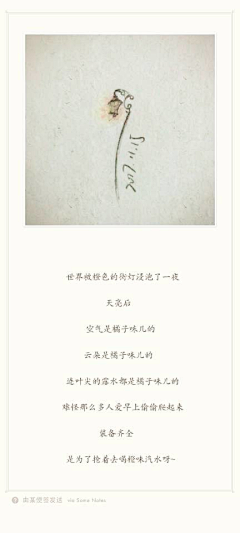 世界被橙色的街灯浸泡了一夜
天亮后
空气是橘子味儿的
云朵是橘子味儿的
连叶尖的露水都是橘子味儿的
难怪那么多人爱早上偷偷爬起来
装备齐全
是为了抢着去喝橙味汽水呀~
via Some Notes